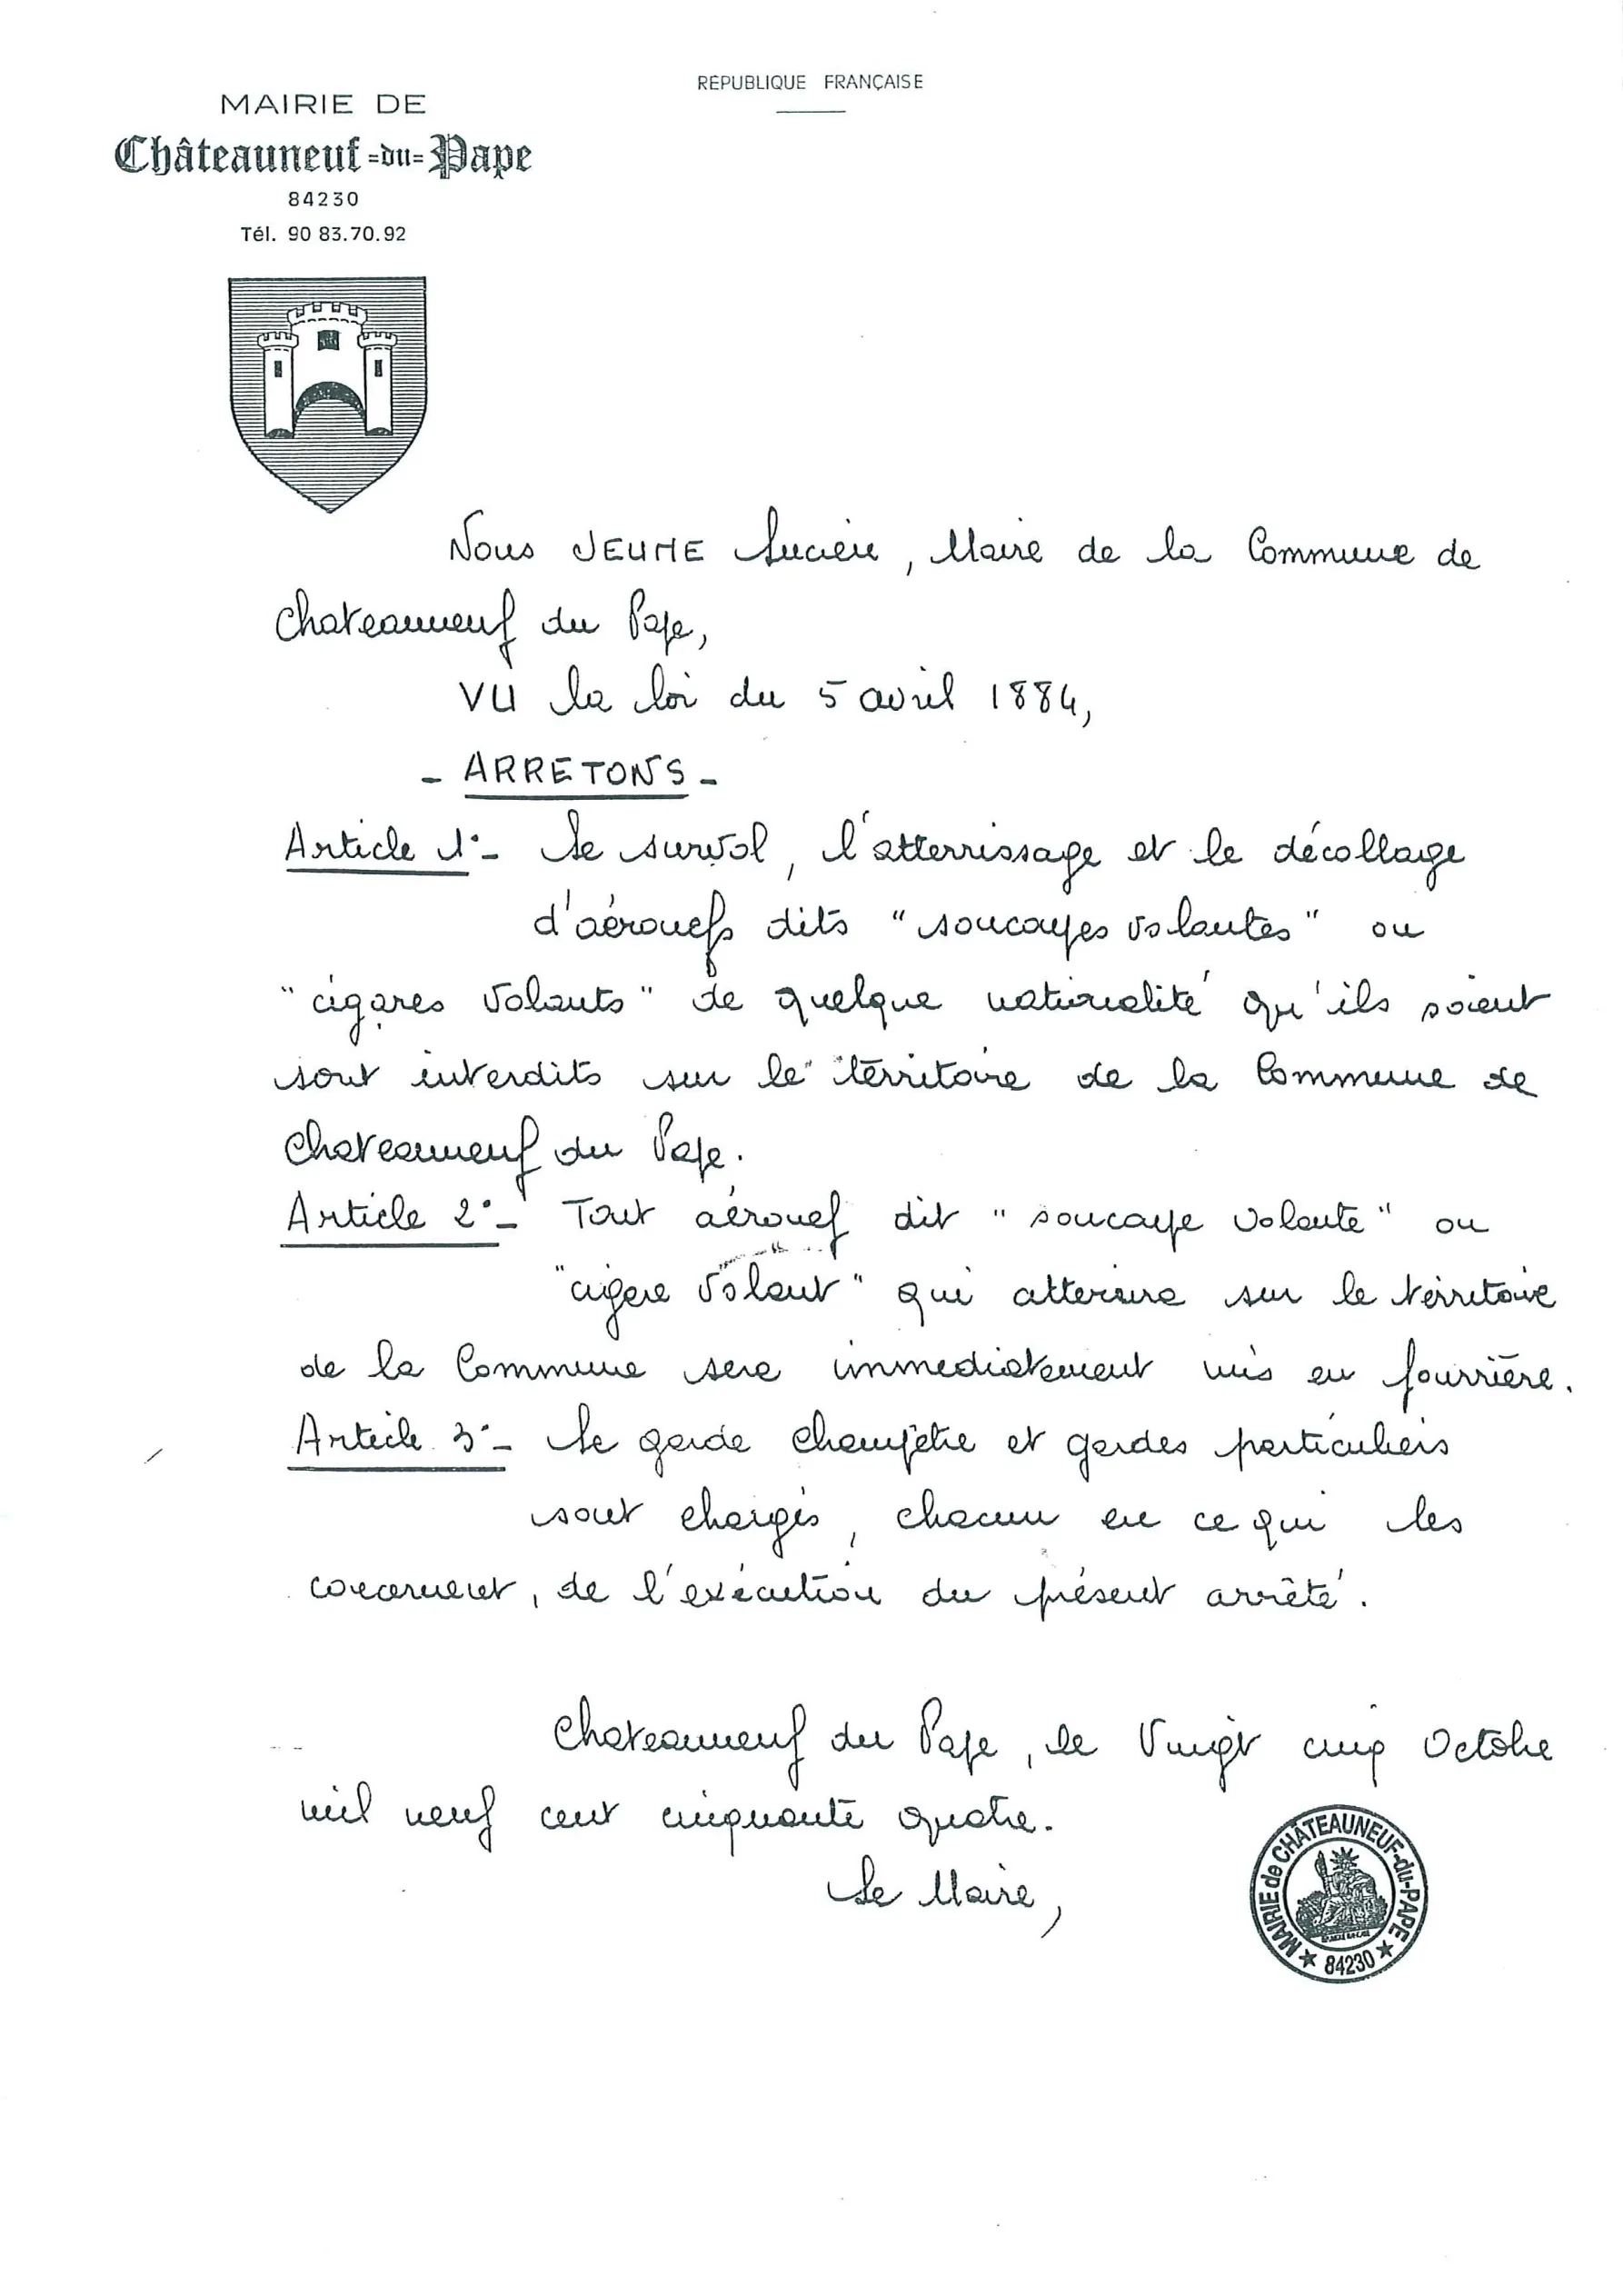 RÉPUBLIQUE FRANÇAISE
MAIRIE DE
Châteauneuf=du=Pape
84230
Tél. 90 83.70.92
Nous JEUNE Lucien, Maire de la Commune de
Chateauneuf du Pape,
VU la loi du 5 avril 1884,
- ARRETONS -
Article 1°- Le survol, l'atterrissage et le décollage
d'aéronefs dits "soucoupes volantes" ou
"cigares volants" de quelque nationalité qu'ils soient
sont interdits sur le térritoire de la Commune de
Chateauneuf du Pape.
Article 2°- Tout aéronef dit "soucoupe volante" ou
"cigare volant" qui atterira sur le térritoire
de la Commune sera immediatement mis en fourrière.
Article 3°- Le garde champêtre et gardes particuliers
sont chargés, chacun en ce qui les
concernent, de l'exécution du présent arrêté.
Chateauneuf du Pape, le Vingt cinq Octobre
mil neuf cent cinquante quatre.
Le Maire,
MAIRIE de CHÂTEAUNEUF-du-PAPE
★ 84230 ★